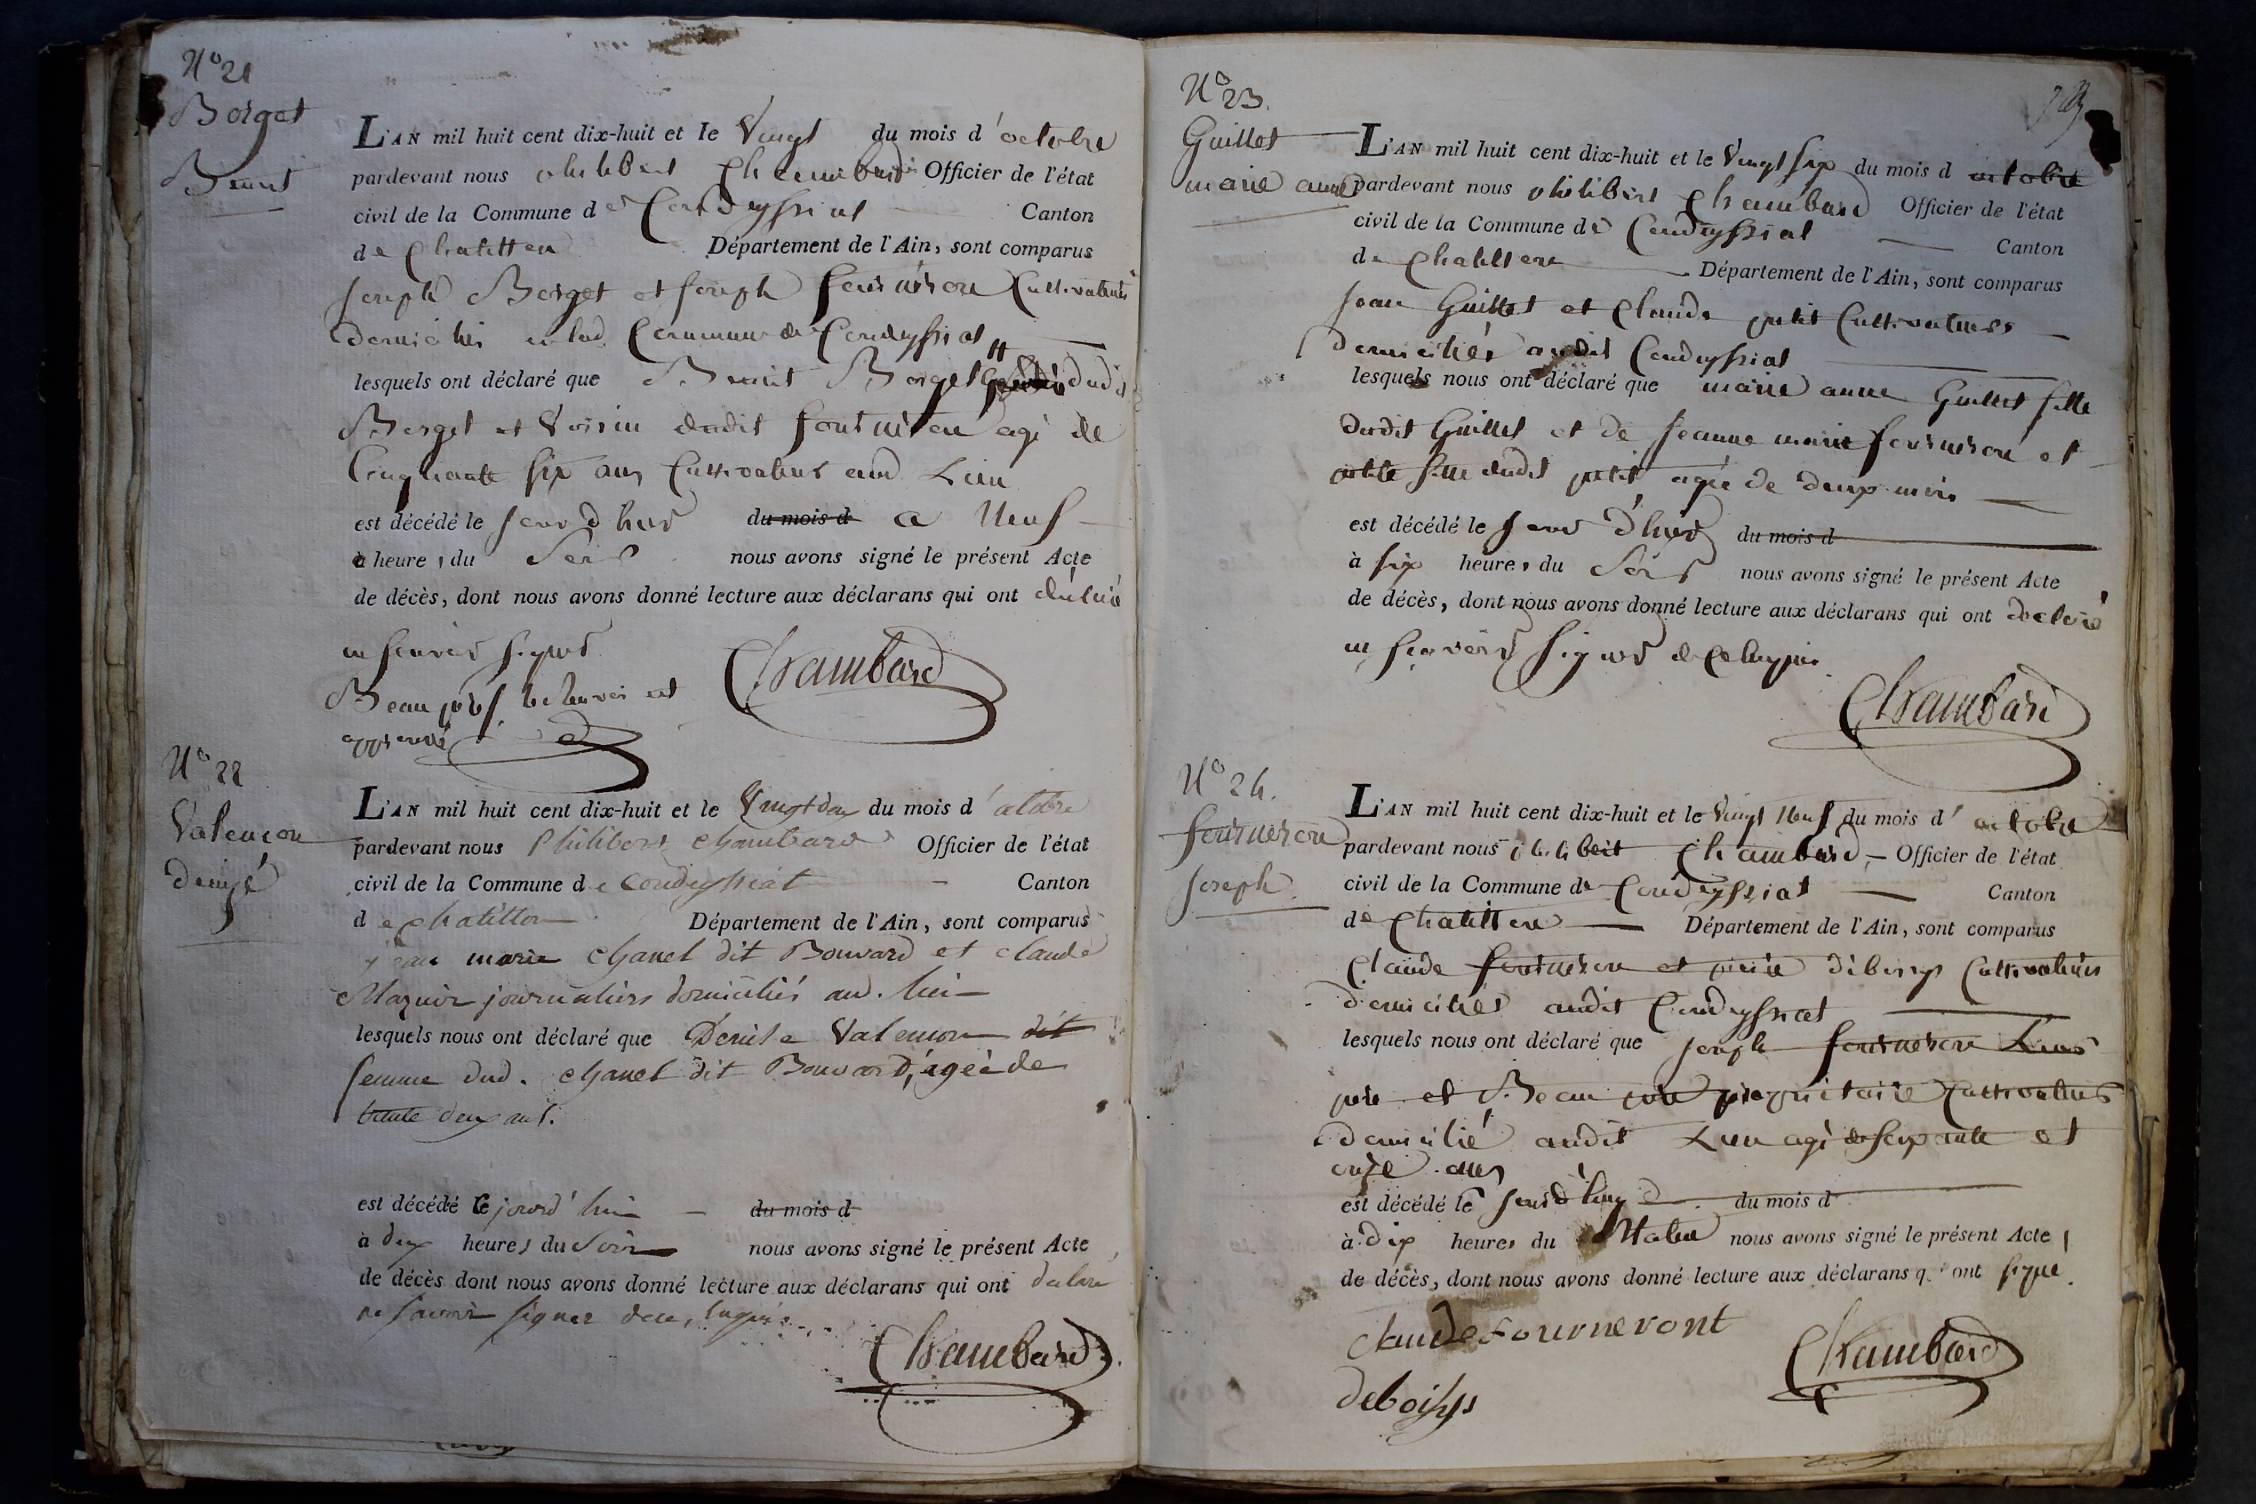 N° 21
Borget
Benoit
L'AN mil huit cent dix-huit et le Vingt du mois d'octobre
pardevant nous philibert Chambard Officier de l'état
civil de la Commune de Condeyssiat Canton
de Chatillon Département de l'Ain, sont comparus
joseph Borget et joseph fourneron Cultivateurs
domiciliés en lad Commune de Condeyssiat
lesquels ont déclaré que Benoit Borget dudit
Borget et Voisin dudit fourneron agé de
Cinquante six ans Cultivateur aud Lieu
est décédé le jourd'hui du mois d a Neuf
heures du Soir nous avons signé le présent Acte
de décès, dont nous avons donné lecture aux déclarans qui ont déclaré
ne savoir signer Chambard
Beau pere et
approuvé
N° 22
Valencon
denise
L'AN mil huit cent dix-huit et le Vingt deux du mois d'octobre
pardevant nous Philibert Chambard Officier de l'état
civil de la Commune de Condeyssiat Canton
de Chatillon Département de l'Ain, sont comparus
jean marie Chanel dit Bouvard et claude
Mazuir journaliers domiciliés aud. lieu
lesquels nous ont déclaré que Denise Valencon dit
femme dud. Chanel dit Bouvard, agée de
trente deux ans.
est décédé le jourd'hui du mois d
à deux heures du Soir nous avons signé le présent Acte
de décès dont nous avons donné lecture aux déclarans qui ont déclaré
ne savoir signer de ce, enquis
Chambard
N° 23.
Guillet
marie anne
L'AN mil huit cent dix-huit et le Vingt six du mois d octobre
pardevant nous philibert Chambard Officier de l'état
civil de la Commune de Condeyssiat Canton
de Chatillon Département de l'Ain, sont comparus
jean Guillet et Claude petit Cultivateurs
domiciliés audit Condeyssiat
lesquels nous ont déclaré que marie anne Guillet fille
dudit Guillet et de jeanne marie fourneron et
petite fille dudit petit agée de deux mois
est décédé le jourd'hui du mois d
à six heures du Soir nous avons signé le présent Acte
de décès, dont nous avons donné lecture aux déclarans qui ont déclaré
ne savoir signer de ce enquis
Chambard
N° 24.
fourneron
joseph
L'AN mil huit cent dix-huit et le Vingt Neuf du mois d'octobre
pardevant nous philibert Chambard Officier de l'état
civil de la Commune de Condeyssiat Canton
de Chatillon Département de l'Ain, sont comparus
Claude fourneron et Cultivateurs
domiciliés audit Condeyssiat
lesquels nous ont déclaré que joseph fourneron Leur
pere et Beau pere propriétaire Cultivateur
domicilié audit Lieu agé de septante et
onze ans
est décédé le jourd'hui du mois d
à dix heures du Matin nous avons signé le présent Acte
de décès, dont nous avons donné lecture aux déclarans qui ont signé.
claude fourneront Chambard